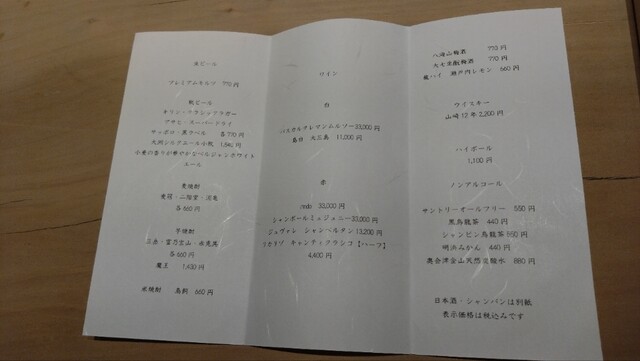 生ビール
プレミアムモルツ 770円
瓶ビール
キリン・クラシックラガー
アサヒ・スーパードライ
サッポロ・黒ラベル 各770円
九州シルクエール小瓶 1,540円
小麦の香りが華やかなベルジャンホワイト
エール
麦焼酎
兼八・二階堂
各660円
芋焼酎
三岳・富乃宝山・赤兎馬
各660円
魔王 1,430円
米焼酎 鳥飼 660円
ワイン
白
パスカルクレマンムルソー33,000円
島白 大三島 11,000円
赤
33,000円
シャンボールミュジュニー33,000円
ジュヴレ シャンベルタン 13,200円
リセリゾ キャンティクラシコ【ハーフ】
4,400円
八海山梅酒 770円
梅酒 770円
酎ハイ 瀬戸内レモン 660円
ウイスキー
山崎12年 2,200円
ハイボール
1,100円
ノンアルコール
サントリーオールフリー 550円
黒烏龍茶 440円
ジャンピン烏龍茶 550円
明浜みかん 440円
奥会津金山天然炭酸水 880円
日本酒・シャンパンは別紙
表示価格は税込みです